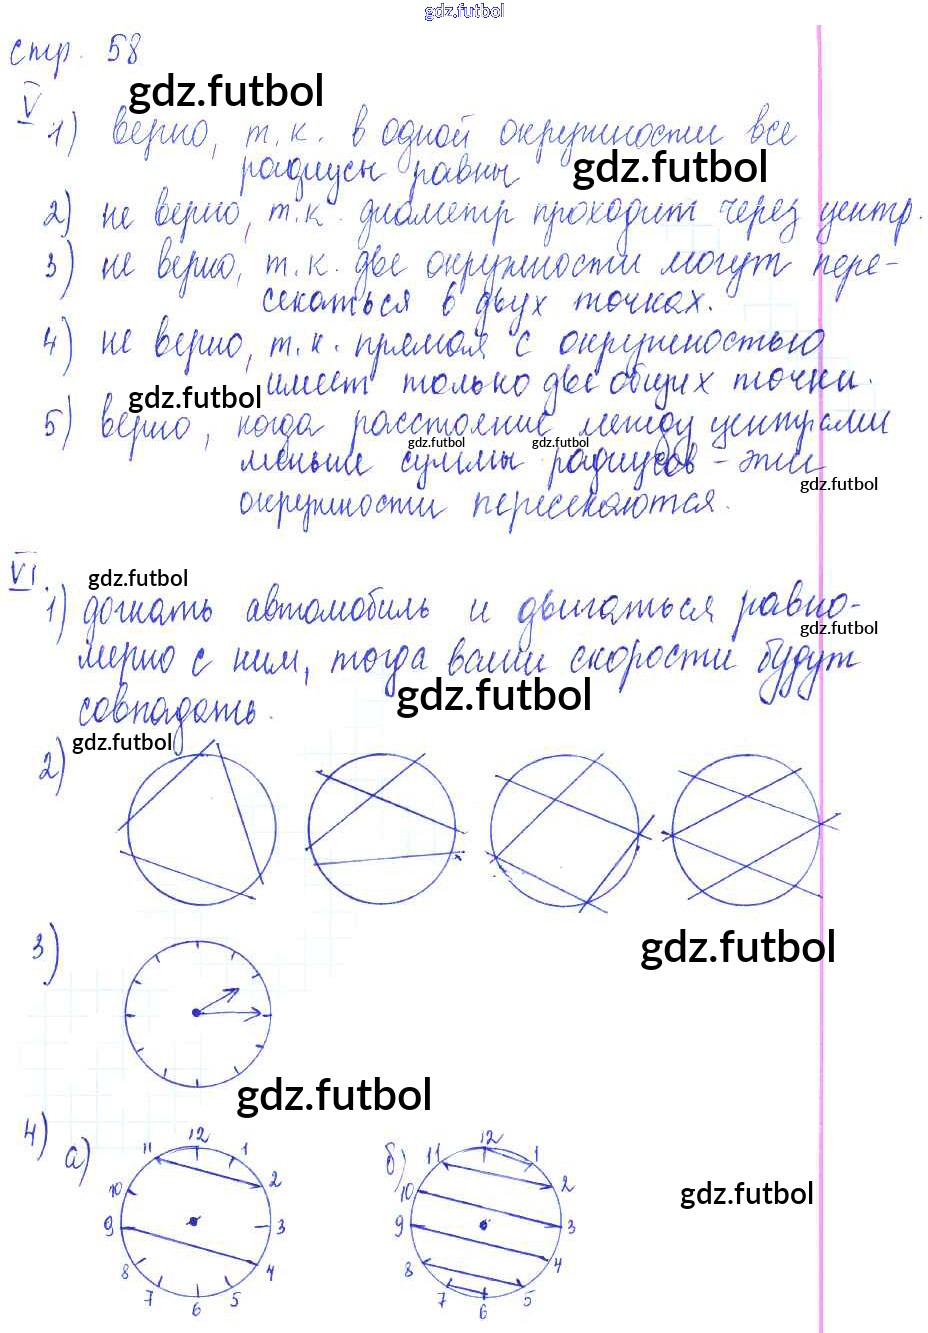 gdz.futbol
стр. 58
gdz.futbol
V
1) верно, т.к. в одной окружности все
радиусы равны
gdz.futbol
2) не верно, т.к. диаметр проходит через центр.
3) не верно, т.к. две окружности могут пере-
секаться в двух точках.
4) не верно, т.к. прямая с окружностью
имеет только две общих точки.
gdz.futbol
5) верно, когда расстояние между центрами
gdz.futbol gdz.futbol
меньше суммы радиусов - эти
gdz.futbol
окружности пересекаются.
VI.
gdz.futbol
1) догнать автомобиль и двигаться равно-
gdz.futbol
мерно с ним, тогда ваши скорости будут
gdz.futbol
совпадать.
gdz.futbol
2)
3)
gdz.futbol
gdz.futbol
4) а) 11 12 1 2 3 4 5 6 7 8 9 10
б) 11 12 1 2 3 4 5 6 7 8 9 10
gdz.futbol